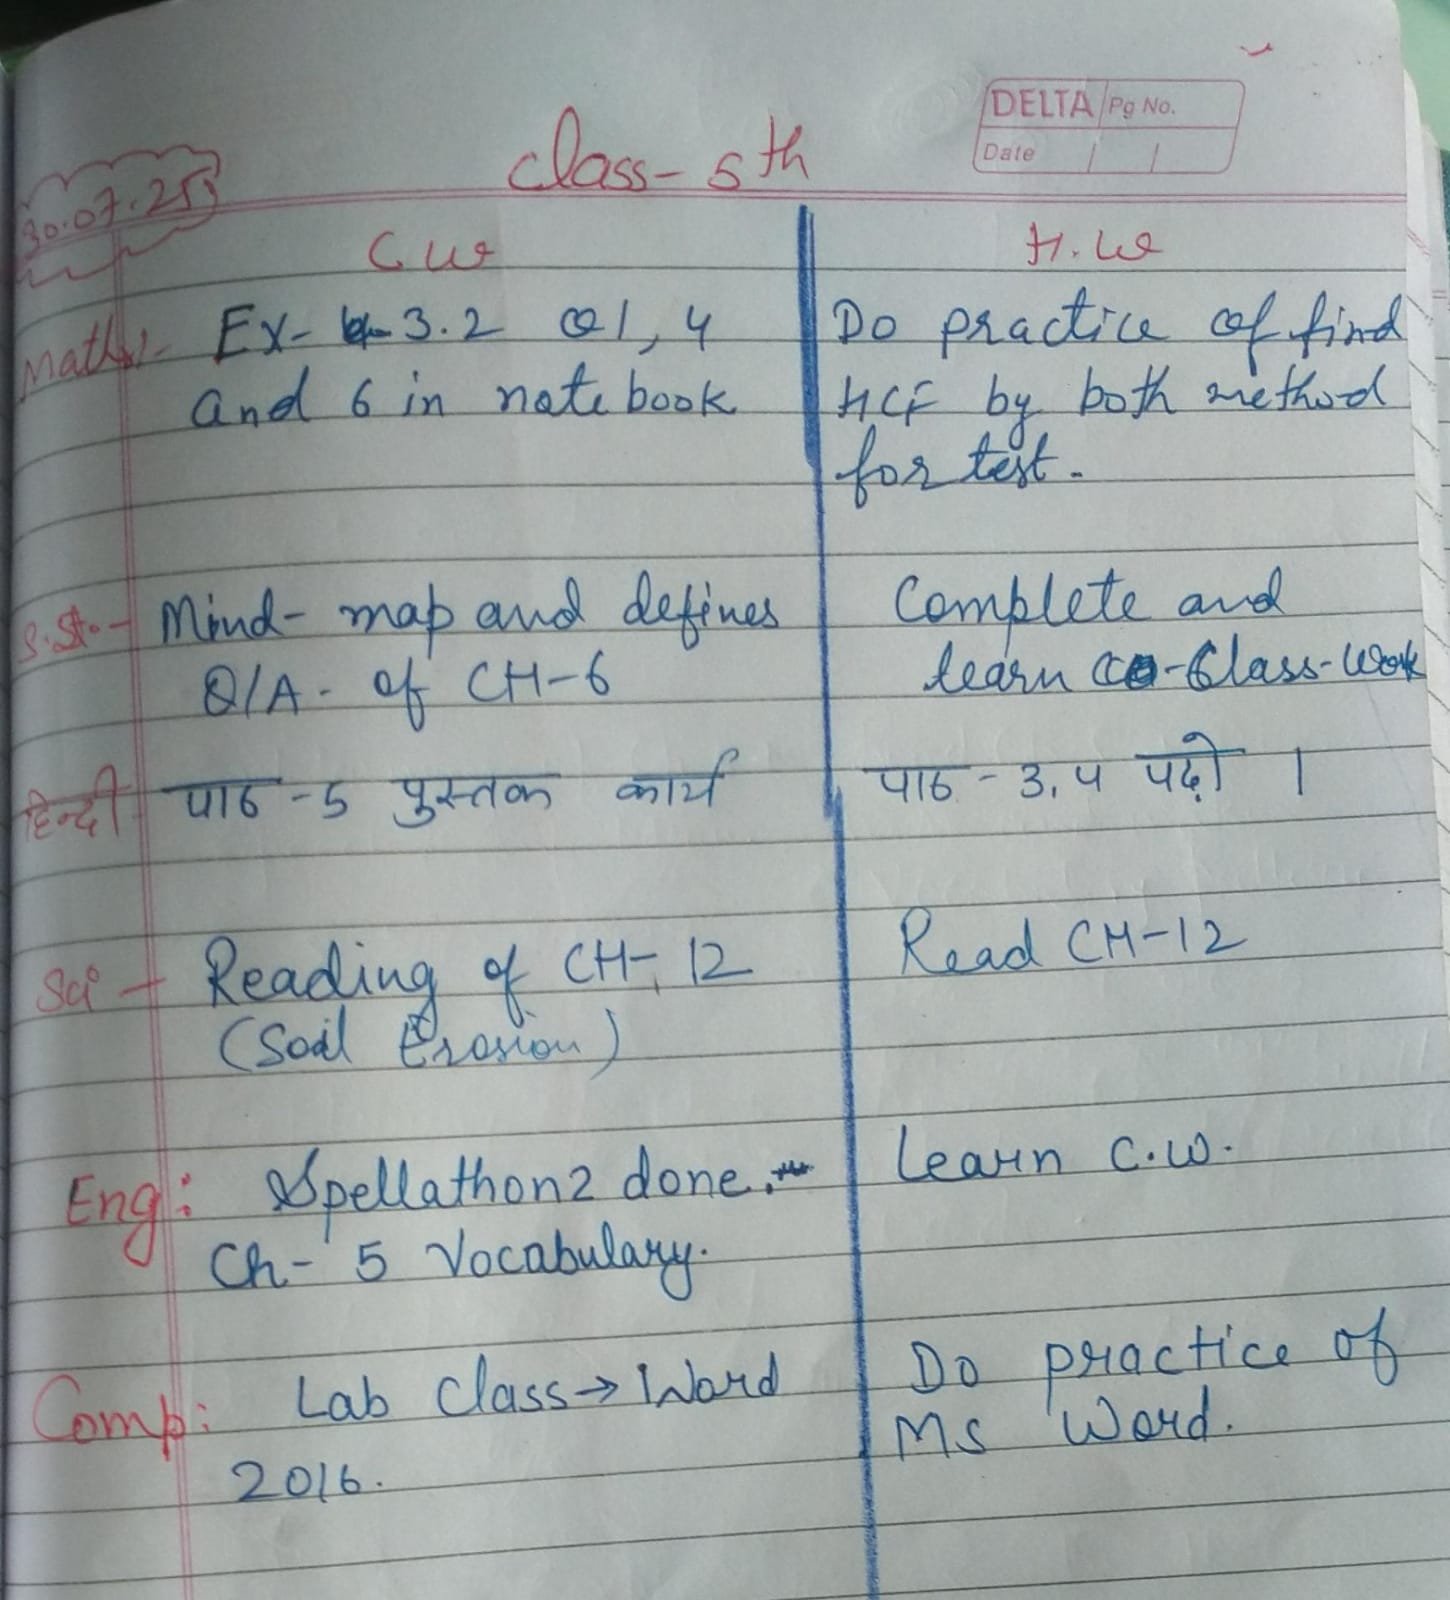 DELTA Pg No.
Date / /
class- 5th
30.07.25
C.W
H.W
Maths- Ex- 3.2 Q1, 4
and 6 in note book
Do practice of find
HCF by both method
for test.
S.St.- Mind- map and defines
Q/A- of CH-6
Complete and
learn Class-Work
हिन्दी- पाठ -5 पुस्तक कार्य
पाठ - 3, 4 पढ़ो ।
Sci - Reading of CH- 12
(Soil Erosion)
Read CH-12
Eng: Spellathon 2 done.
Ch- 5 Vocabulary.
Learn C.W.
Comp: Lab Class → Word
2016.
Do practice of
MS Word.